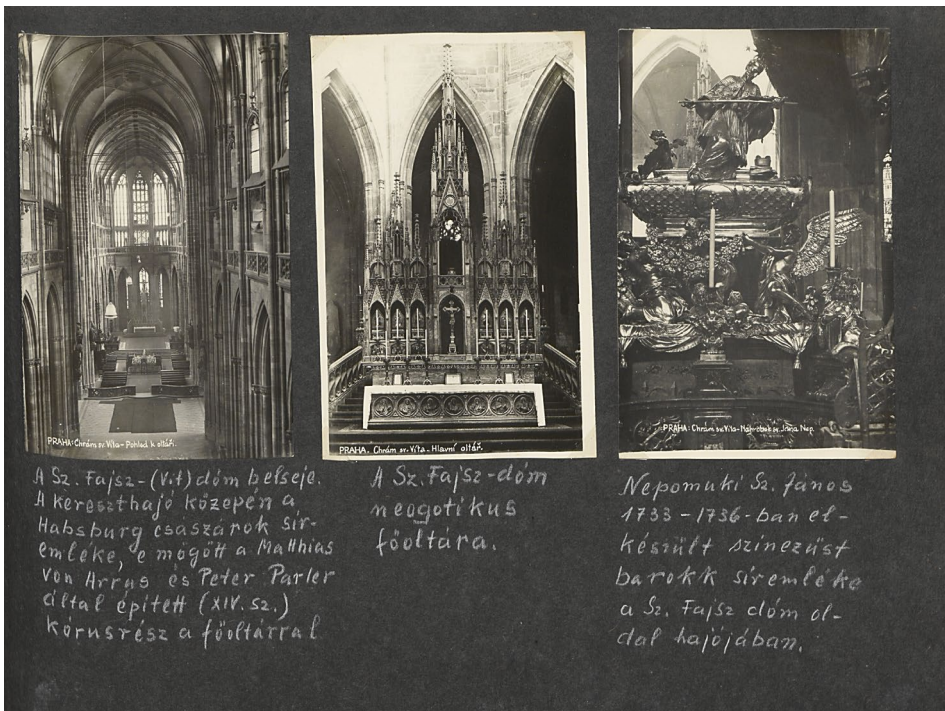 PRAHA: Chrám sv. Víta - Pohled k oltáři.
A Sz. Fajsz-(Vit) dóm belseje.
A kereszthajó közepén a
Habsburg császárok sír-
emléke, e mögött a Matthias
von Arras és Peter Parler
által épített (XIV. sz.)
kórusrész a főoltárral
PRAHA. Chrám sv. Víta - Hlavní oltář.
A Sz. Fajsz-dóm
neogotikus
főoltára.
PRAHA: Chrám sv. Víta - Náhrobek sv. Jana Nep.
Nepomuki Sz. János
1733-1736-ban el-
készült színezüst
barokk síremléke
a Sz. Fajsz dóm ol-
dal hajójában.